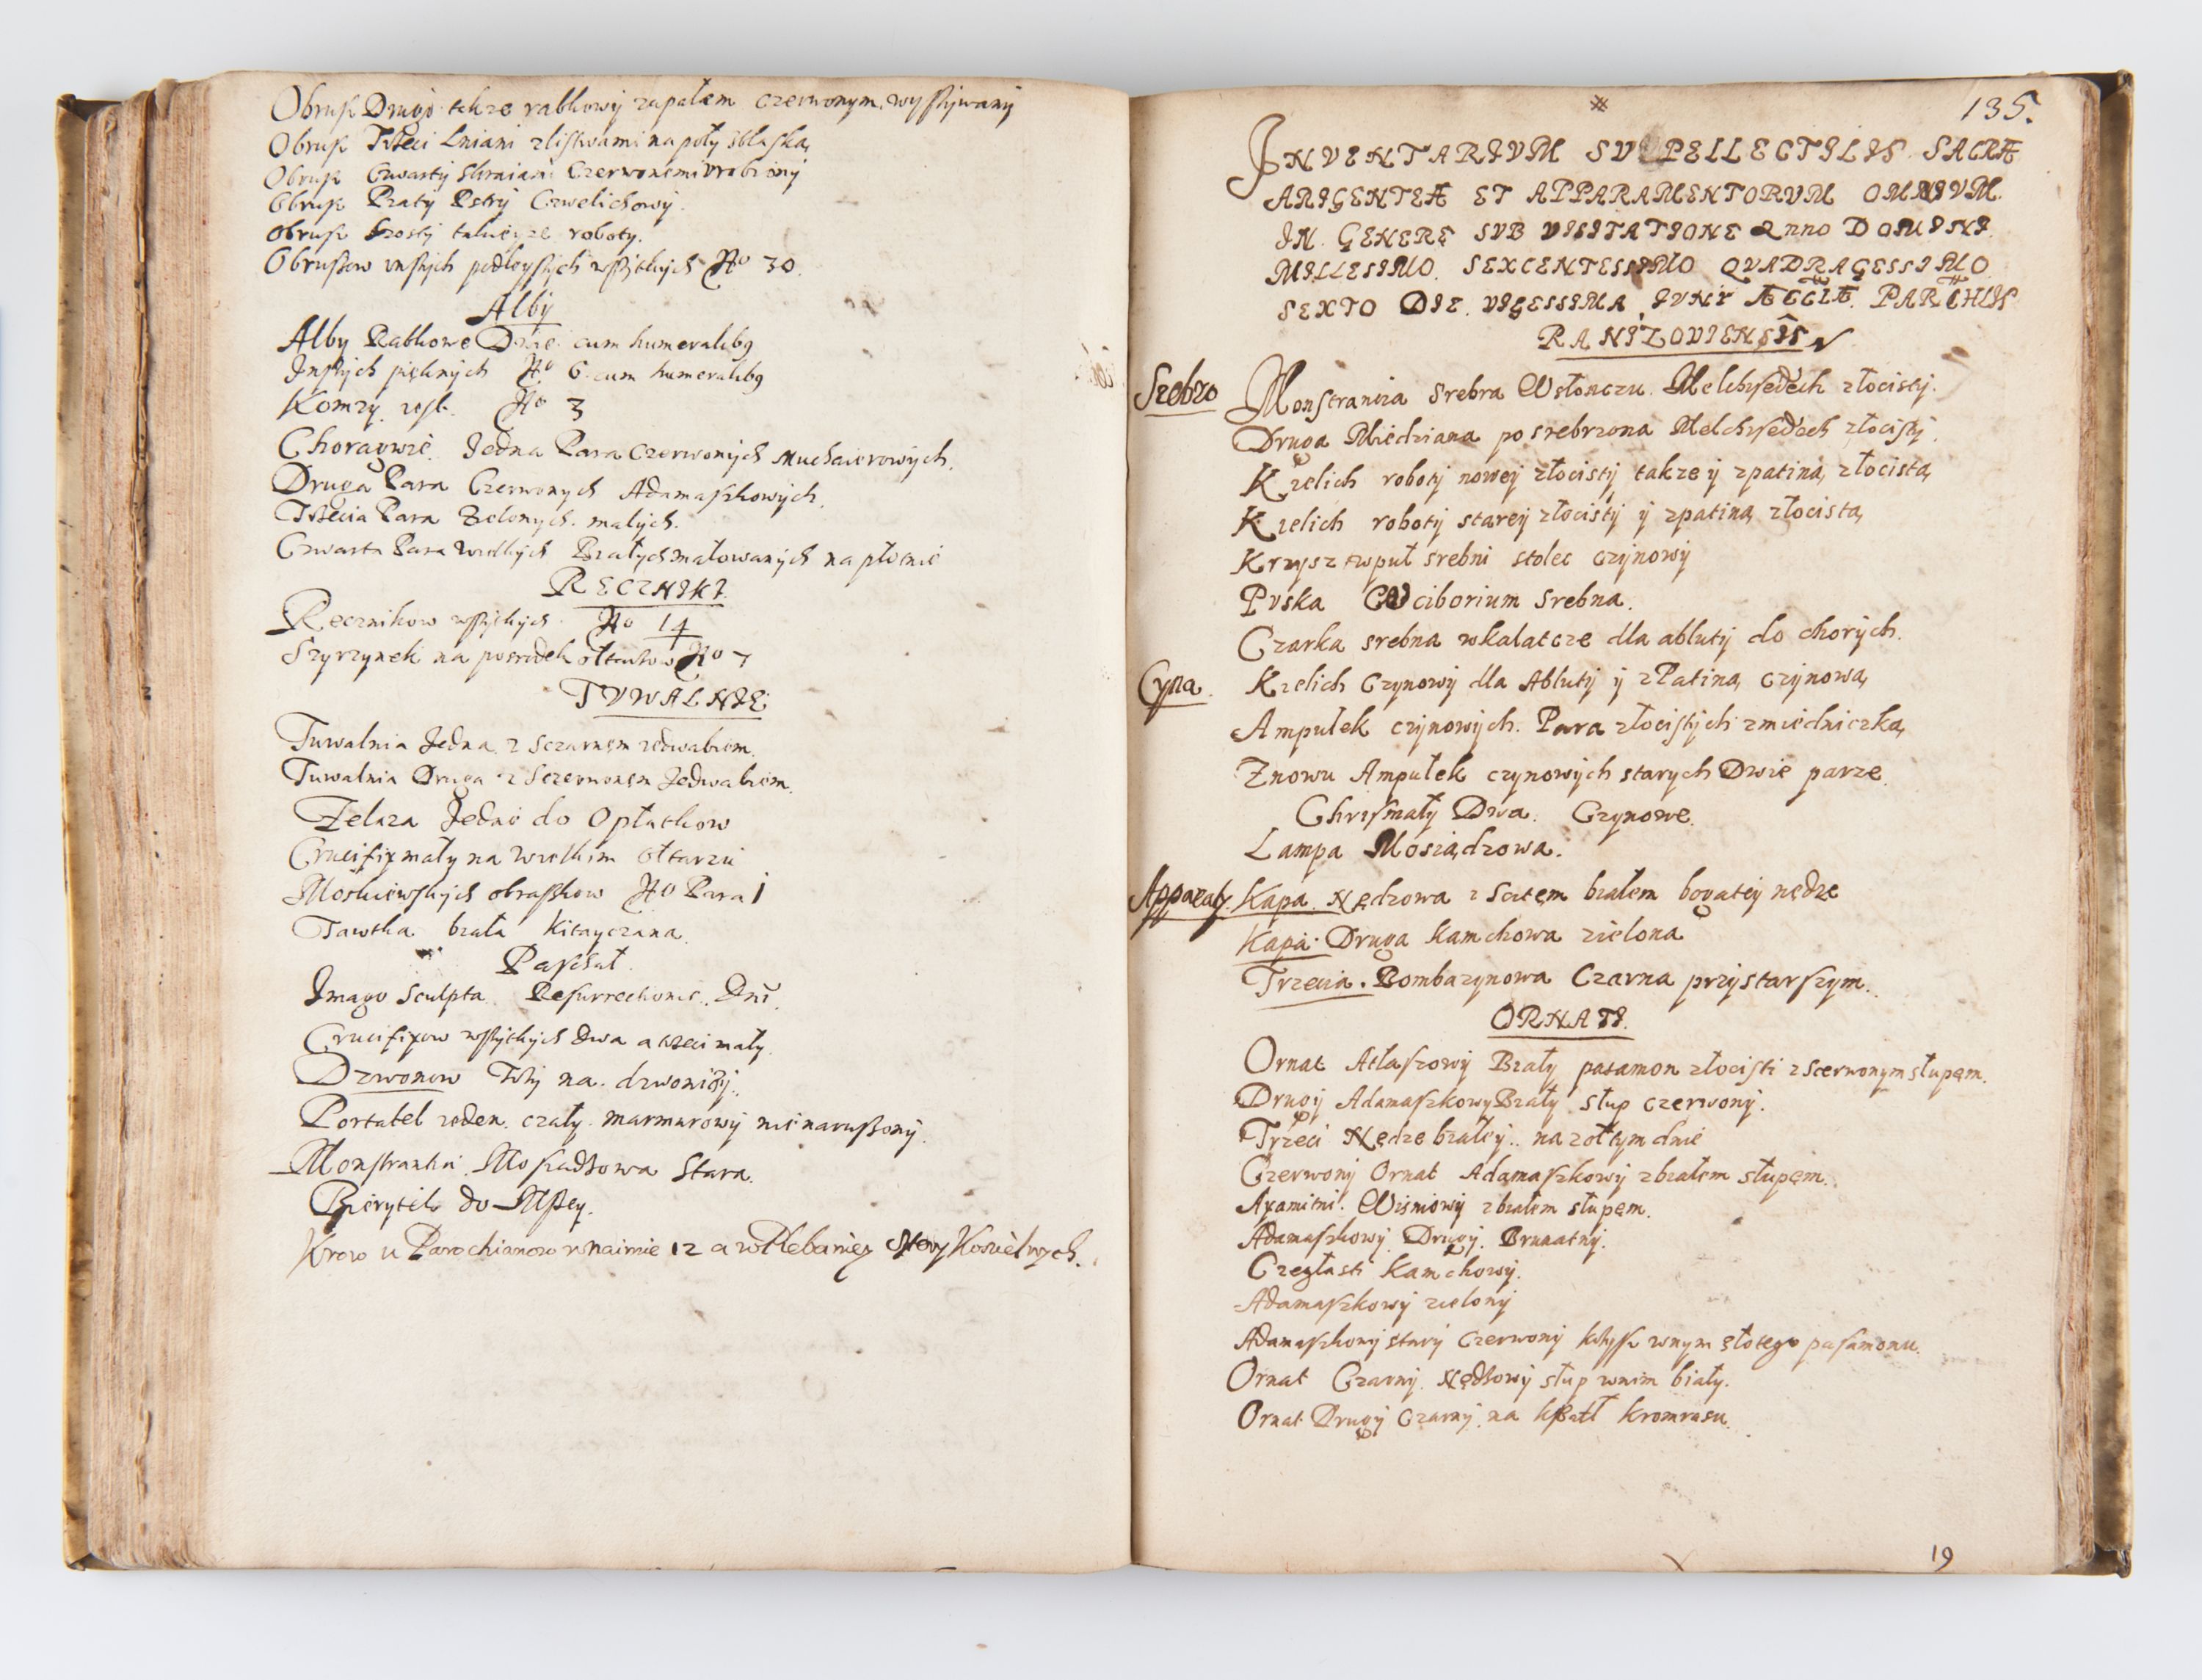 Obrus Drugi takze rabkowy zapałem czerwonym wyssywany
Obrus Trzeci Lniani zlistwami napoły
Obrus Czwarty Czerwonemi vrobiony
Obrus Piąty Pstry Czwelichowy.
Obrus Szosty takieyze roboty.
Obrusow inszych podleyszych wszytkich No 30.
Alby
Alby Rabkowe Dwie cum humeralibg
Inszych pięknych No 6. cum humeralibg
Komzy No 3
Choragwie. Jedna Para Czerwonych Muchaierowych.
Druga Para Czerwonych Adamaszkowych.
Trzecia Para Zielonych. małych.
Czwarta Para wielkich Białych małowanych na płotnie
RECZNIKI
Recznikow wszytkich No 14
Szyrzynek na posrodek ołtarzow No 7
TVWALNIE
Tuwalnia Jedna z Sczarnem iedwabiem.
Tuwalnia Druga z Sczerwonem Jedwabiem.
Zelaza Jedne do Opłatkow
Crucifix mały na wielkim ołtarzu
Moskiewskich obraskow No Para 1
Ławtka biała Kitayczana
Paschał.
Imago Sculpta Resurrectionis. Dni.
Crucifixow wszytkich dwa a trzeci mały.
Dzwonow Trzy na dzwonicy.
Portatel ieden. cały marmurowy nienaruszony.
Monstrantia Mosiadzowa Stara.
do Mszey.
Krow u Parochianow wnaimie 12 a wPlebaniey Kościelnych.
135.
INVENTARIVM SVPPELLECTILIS SACRÆ
ARGENTEÆ ET APPARAMENTORVM OMNIVM
IN GENERE SVB VISITATIONE Anno DOMINI
MILLESIMO SEXCENTESSIMO QVADRAGESSIMO
SEXTO DIE VIGESSIMA IVNY ÆCCLÆ PAROHLIS
RANIZOVIENSIS
Srebro Monstrancia Srebra Wsłonczu Melchisedech złocisty.
Druga Miedziana posrebrzona Melchisedech złocisty.
Kielich roboty nowey złocisty takze y zpatiną złocistą
Kielich roboty starey złocisty y zpatiną złocistą
Krzysz wpuł srebni stolec czynowy
Puska Ciborium Srebna.
Czarka srebna wkalatcze dla abluty do chorych.
Cyna. Kielich Czynowy dla Abluty y zPatiną czynową
Ampułek czynowych. Para złocistych zmiedniczką
Znowu Ampułek czynowych starych Dwie parze
Chrismały Dwa. Czynowe.
Lampa Mosiądzowa.
Apparaty. Kapa. Nędzowa z Scitem białem bogatey nędze
Kapa. Druga kamchowa zielona
Trzecia. Bombazynowa Czarna przystarszym.
ORNATI.
Ornat Atlaszowy Biały pasamon złocisti z Scerwonym słupęm.
Drugy Adamaszkowy Biały słup czerwony.
Trzeci Nędze białey na zołtym dnie
Czerwony Ornat Adamaszkowy zbiałem słupęm.
Axamitni. Wisniowy zbiałem słupęm.
Adamaszkowy. Drugy. Brunatny.
Czegłasti Kamchowy.
Adamaszkowy zielony
Adamaszkowy stary Czerwony wnym złotego pasamonu.
Ornat Czarny Nędzowy słup wnim biały.
Ornat Drugy Czarny na kształt kromrasu.
19